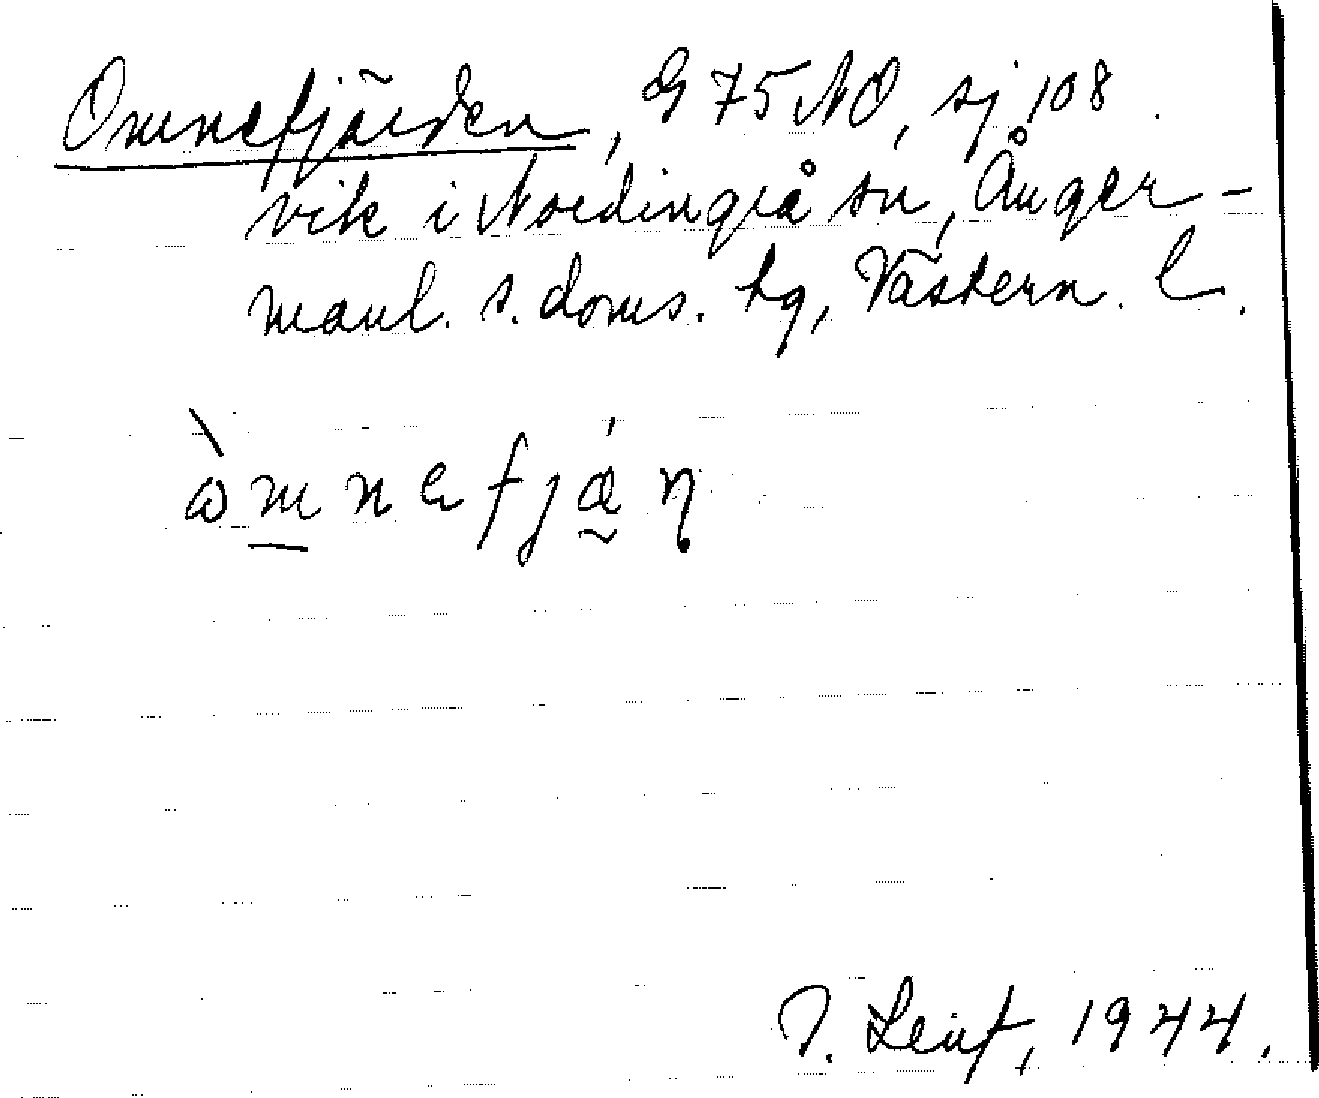 Omnefjärden, G 75 NO, sj 108.
vik i Nordingrå sn, Ånger-
manl. s. doms. tg, Västern. l.
T. Leuf, 1944.